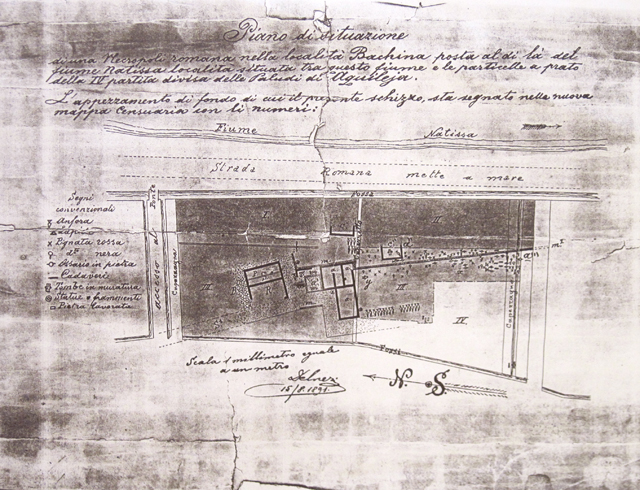 Piano di situazione
di una Necropoli romana nella località Bachina posta al di là del
fiume Natissa località situata tra questo fiume e le particelle a prato
della IV partita divisa delle Paludi di Aquileja.
L'appezzamento di fondo di cui il presente schizzo, sta segnato nella nuova
mappa Censuaria con li numeri:
Fiume Natissa
Strada Romana mette a mare
Fossa
Segni
convenzionali
Anfora
Pignata rossa
dº nera
Ossario in pietra
Cadaveri
Tombe in muratura
Statue e frammenti
Pietra lavorata
accesso al
Capezzagna
I
II
III
III
IV
Capezzagna
Fossi
Scala 1 millimetro eguale
a un metro
15/8.1891.
N. S.